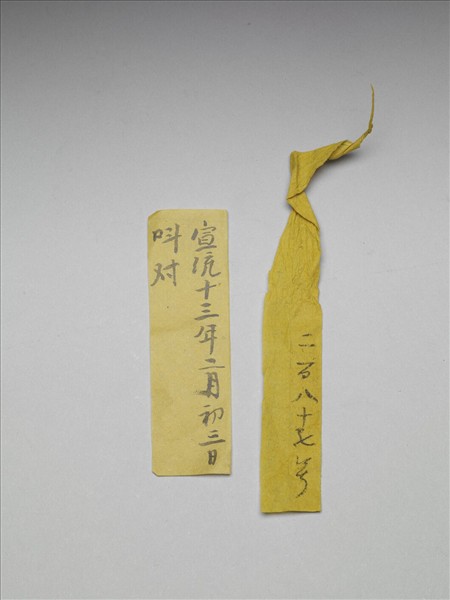 宣统十三年二月初三日
叫对
二百八十七号